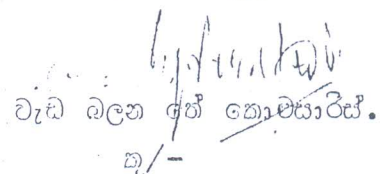 වැඩ බලන තේ කොමසාරිස්.
ක/-